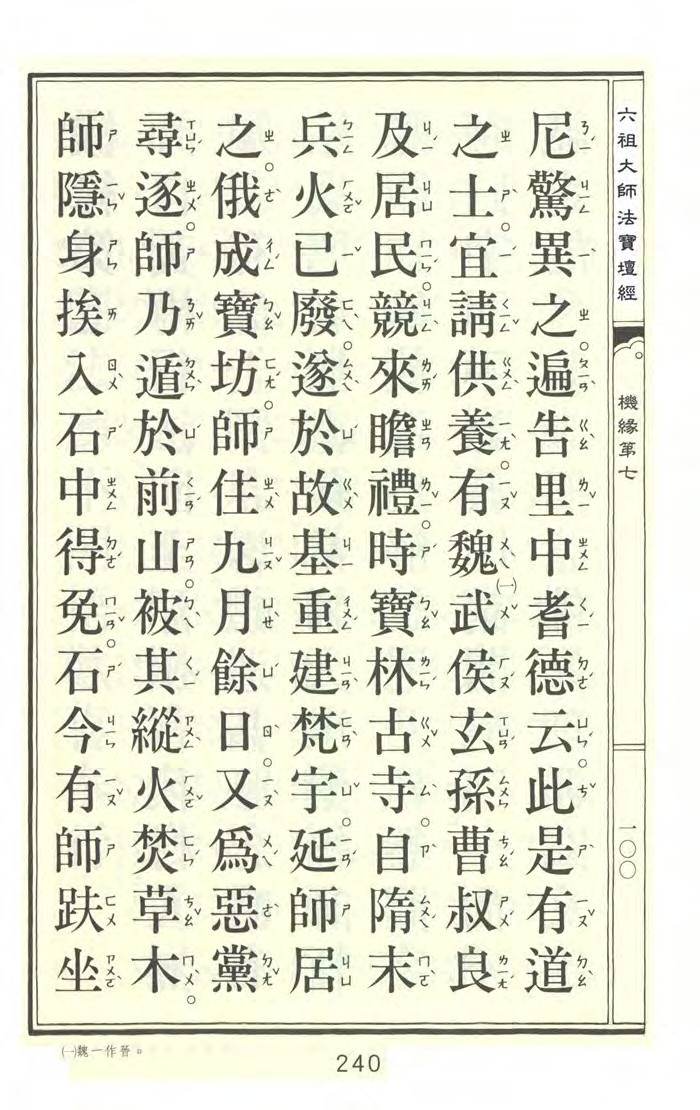 六祖大師法寶壇經 機緣第七 一〇〇
尼驚異之。遍告里中耆德云。此是有道
之士。宜請供養。有魏㈠武侯玄孫曹叔良
及居民。競來瞻禮。時寶林古寺。自隋末
兵火已廢。遂於故基重建梵宇。延師居
之。俄成寶坊。師住九月餘日。又為惡黨
尋逐。師乃遁於前山。被其縱火焚草木。
師隱身挨入石中得免。石今有師趺坐
㈠魏一作晉。
240